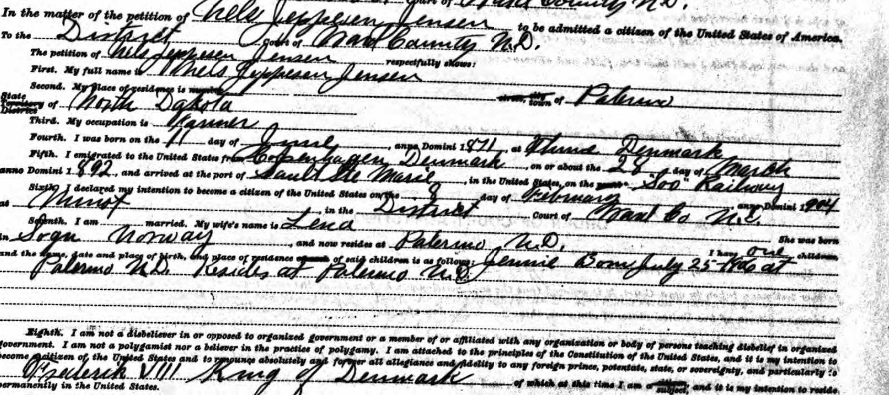 In the matter of the petition of Nels Jeppesen Jensen to be admitted a citizen of the United States of America.
To the District Court of Ward County N.D.
The petition of Nels Jeppesen Jensen respectfully shows:
First. My full name is Nels Jeppesen Jensen
Second. My place of residence is number
State Territory District of North Dakota town of Palermo
Third. My occupation is Farmer
Fourth. I was born on the 11 day of June anno Domini 1871, at Denmark
Fifth. I emigrated to the United States from Copenhagen Denmark, on or about the 28 day of March
anno Domini 1892, and arrived at the port of Sault Ste Marie, in the United States, on the "Soo" Railway
Sixth. I declared my intention to become a citizen of the United States on the 8 day of February anno Domini 1904
at Minot, in the District Court of Ward Co N.D.
Seventh. I am married. My wife's name is Lena She was born
in Sogn Norway, and now resides at Palermo N.D. I have one children,
and the name, date and place of birth, and place of residence of said children is as follows: Jennie Born July 25 1906 at
Palermo N.D. Resides at Palermo N.D.
Eighth. I am not a disbeliever in or opposed to organized government or a member of or affiliated with any organization or body of persons teaching disbelief in organized
government. I am not a polygamist nor a believer in the practice of polygamy. I am attached to the principles of the Constitution of the United States, and it is my intention to
become a citizen of the United States and to renounce absolutely and forever all allegiance and fidelity to any foreign prince, potentate, state, or sovereignty, and particularly to
Frederik VIII King of Denmark of which at this time I am a subject, and it is my intention to reside
permanently in the United States.